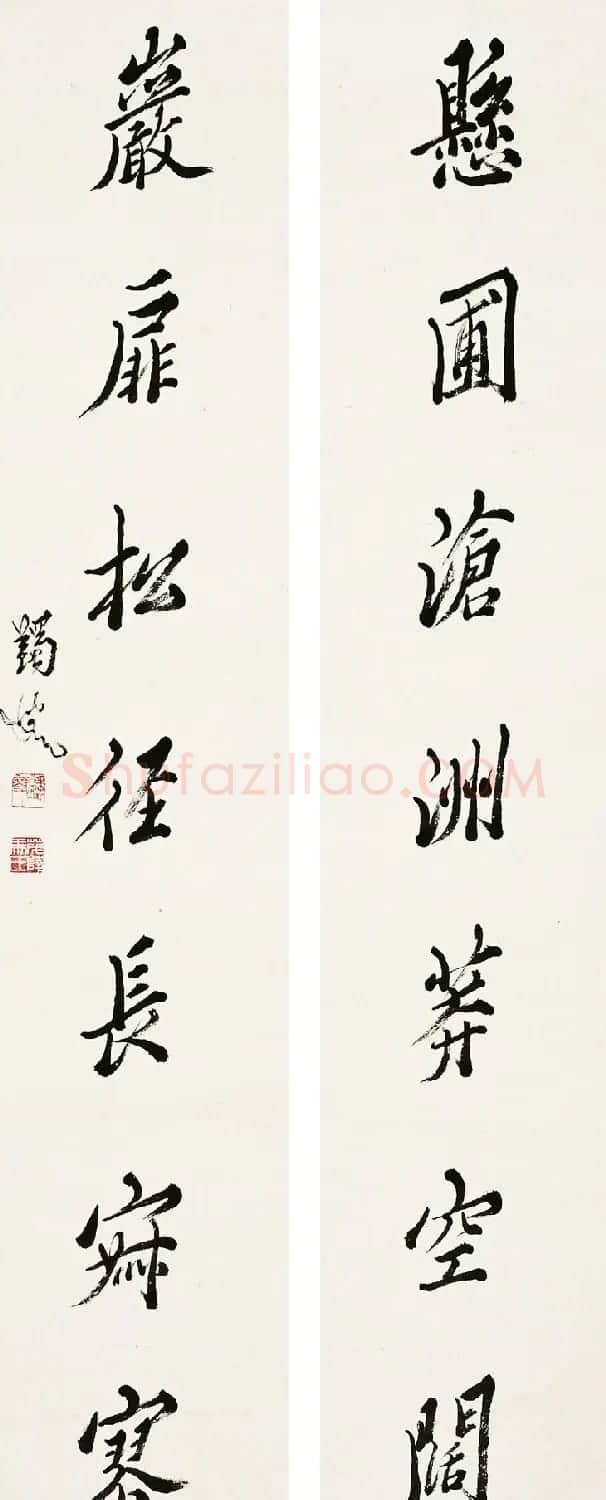 懸圃滄洲莽空闊
巖扉松径長寂寥
蠲
Shufaziliao.COM